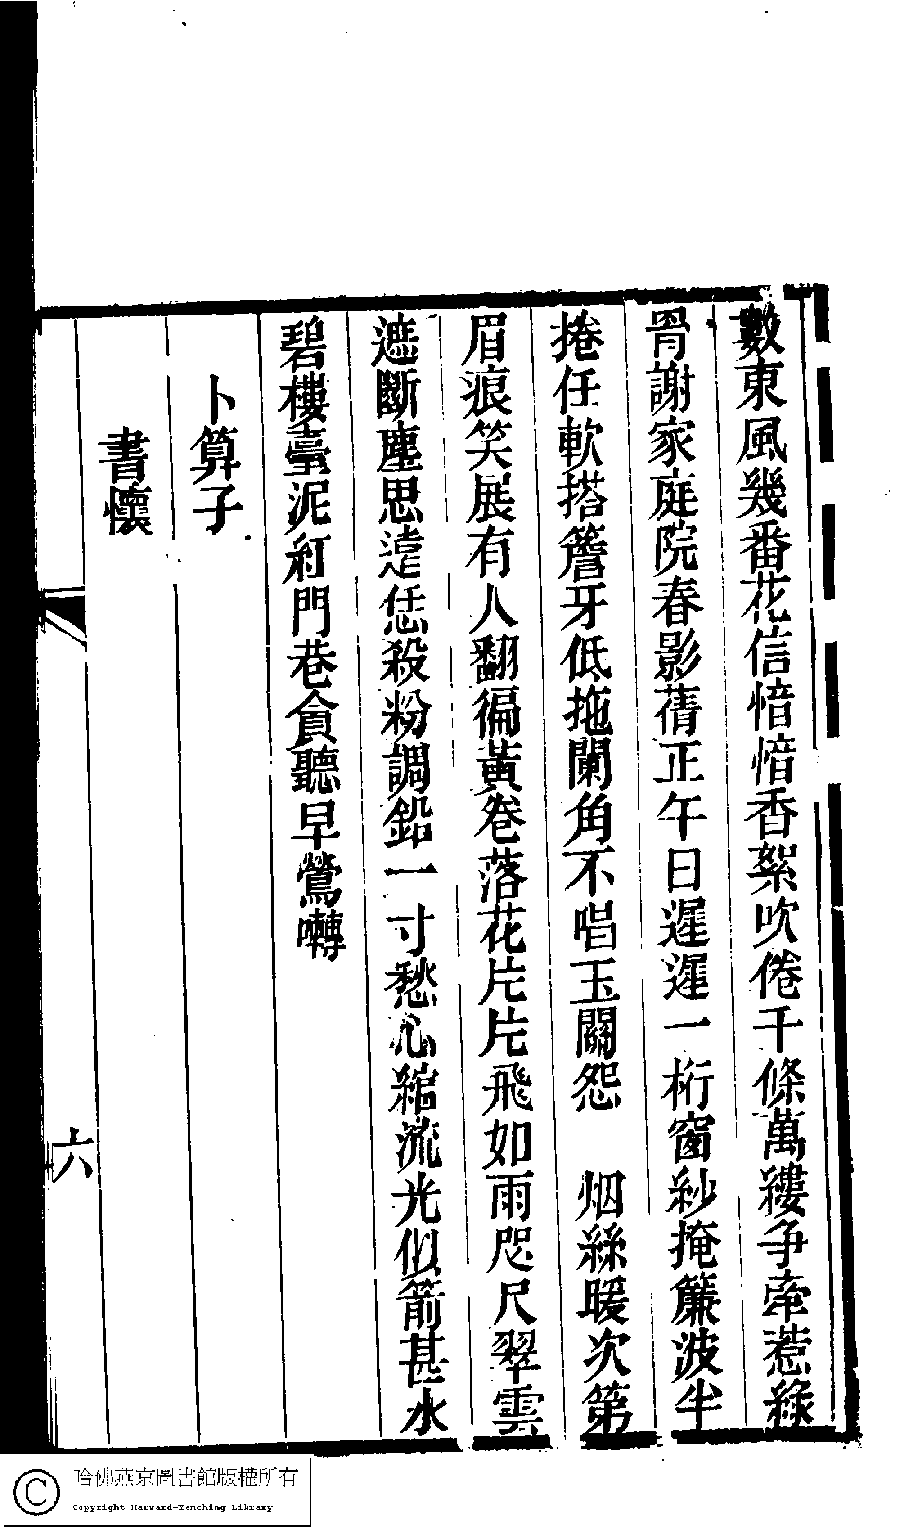 數東風幾番花信愔愔香絮吹倦千條萬縷爭牽惹綠
骨謝家庭院春影蒨正午日遲遲一桁窗紗掩簾波半
捲任軟搭簷牙低拖闌角不唱玉關怨　烟絲暖次第
眉痕笑展有人翻徧黃卷落花片片飛如雨咫尺翠雲
遮斷塵思遠恁殺粉調鉛一寸愁心綰流光似箭甚水
碧樓臺泥紅門巷貪聽早鶯囀
卜算子
書懷
六
哈佛燕京圖書館版權所有
Copyright Harvard-Yenching Library